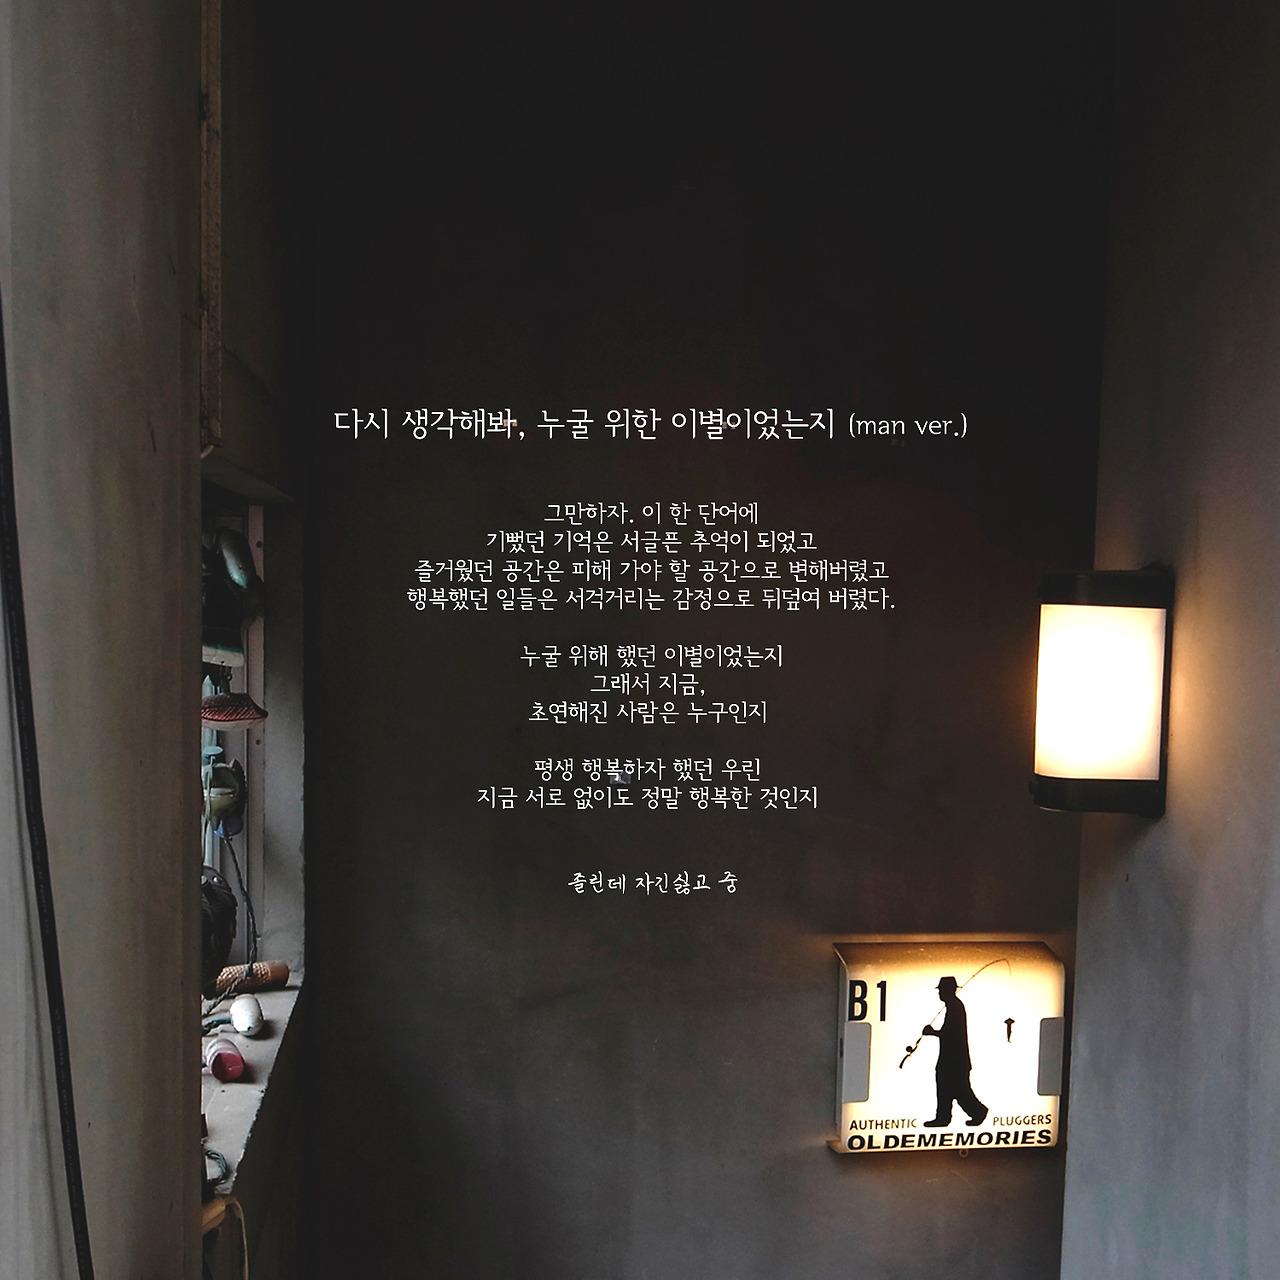 다시 생각해봐, 누굴 위한 이별이었는지 (man ver.)
그만하자. 이 한 단어에
기뻤던 기억은 서글픈 추억이 되었고
즐거웠던 공간은 피해 가야 할 공간으로 변해버렸고
행복했던 일들은 서걱거리는 감정으로 뒤덮여 버렸다.
누굴 위해 했던 이별이었는지
그래서 지금,
초연해진 사람은 누구인지
평생 행복하자 했던 우린
지금 서로 없이도 정말 행복한 것인지
졸린데 자긴싫고 중
B1
AUTHENTIC PLUGGERS
OLDEMEMORIES